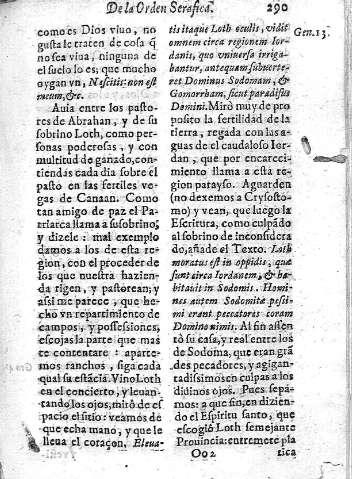 De la Orden Serafica. 290
como es Dios viuo, no
gusta le traten de cosa q̃
no sea viua, ninguna de
el suelo lo es; que mucho
oygan vn, Nescitis: non est
meum, &c.
Auia entre los pasto-
res de Abrahan, y de su
sobrino Loth, como per-
sonas poderosas, y con
multitud de ganado, con-
tiendas cada dia sobre el
pasto en las fertiles ve-
gas de Canaan. Como
tan amigo de paz el Pa-
triarca llama a su sobrino;
y dizele: mal exemplo
damos a los de esta re-
gion, con el proceder de
los que nuestra hazien-
da rigen, y pastorean; y
assi me parece, que he-
cho vn repartimiento de
campos, y possessiones,
escojas la parte que mas
te contentare: aparte-
mos ranchos, siga cada
qual su estãcia. Vino Loth
en el concierto, y leuan-
tando los ojos, mirò de es
pacio el sitio: veamos de
que echa mano, y que le
lleua el coraçon. Eleua-
tis itaque Loth oculis, vidit
omnem circa regionem Ior-
danis, quo vniuersa irriga-
batur, antequam subuerte-
ret Dominus Sodomam, &
Gomorrham, sicut paradisus
Domini. Mirò muy de pro
posito la fertilidad de la
tierra, regada con las a-
guas de el caudaloso Ior-
dan, que por encareci-
miento llama a esta re-
gion parayso. Aguarden
(no dexemos a Crysosto-
mo) y vean, que luego la
Escritura, como culpãdo
al sobrino de inconsidera
do, añade el Texto. Loth
moratus est in oppidis, quæ
sunt circa Iordanem, & ha-
bitauit in Sodomis. Homi-
nes autem Sodomitæ pessi-
mi erant peccatores coram
Domino nimis. Al fin assen
tò su casa, y real entre los
de Sodoma, que eran grã
des pecadores, y agigan-
tadissimos en culpas a los
diuinos ojos. Pues sepa-
mos: a que fin, en dizien-
do el Espiritu santo, que
escogiò Loth semejante
Prouincia: entremete pla
Oo2 tica
Gen. 13.